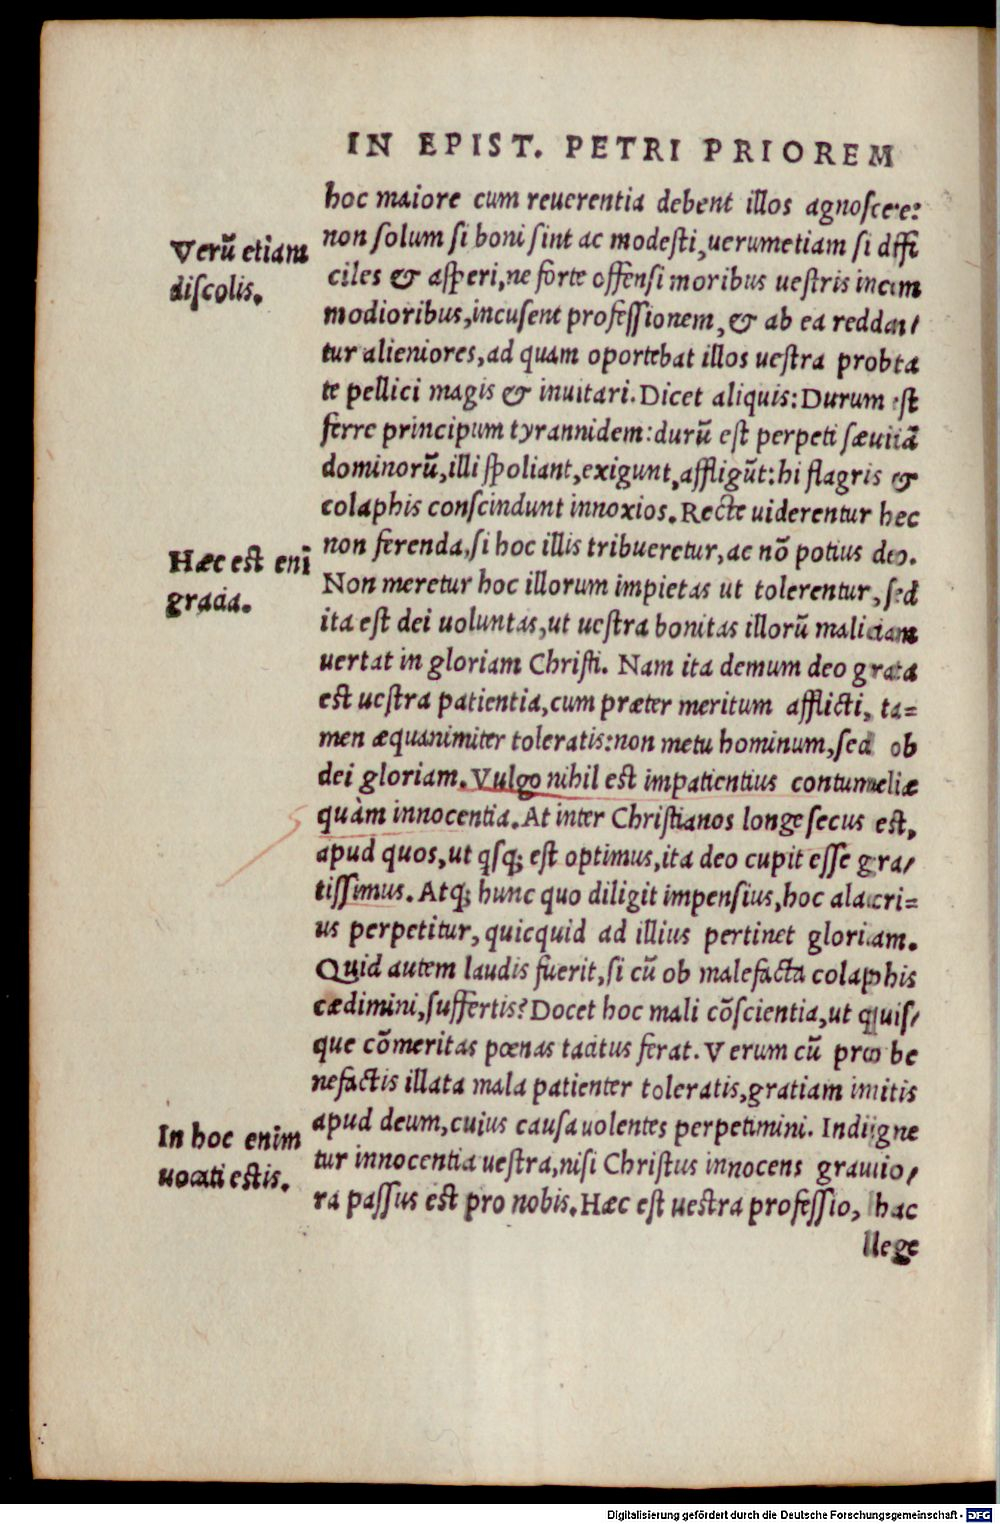 IN EPIST. PETRI PRIOREM
hoc maiore cum reuerentia debent illos agnoscere:
non solum si boni sint ac modesti, uerumetiam si diffi
Verũ etiam
discolis.
ciles & asperi, ne forte offensi moribus uestris incom
modioribus, incusent professionem, & ab ea reddan/
tur alieniores, ad quam oportebat illos uestra probita
te pellici magis & inuitari. Dicet aliquis: Durum est
ferre principum tyrannidem: durũ est perpeti sæuitiã
dominorũ, illi spoliant, exigunt, affligũt: hi flagris &
colaphis conscindunt innoxios. Recte uiderentur hec
non ferenda, si hoc illis tribueretur, ac nõ potius deo.
Hæc est eni̅
gracia.
Non meretur hoc illorum impietas ut tolerentur, sed
ita est dei uoluntas, ut uestra bonitas illorũ maliciam
uertat in gloriam Christi. Nam ita demum deo grata
est uestra patientia, cum præter meritum afflicti, ta=
men æquanimiter toleratis: non metu hominum, sed ob
dei gloriam. Vulgo nihil est impatientius contumeliæ
quàm innocentia. At inter Christianos longe secus est,
apud quos, ut qsq; est optimus, ita deo cupit esse gra/
tissimus. Atq; hunc quo diligit impensius, hoc alacri=
us perpetitur, quicquid ad illius pertinet gloriam.
Quid autem laudis fuerit, si cũ ob malefacta colaphis
cædimini, suffertis? Docet hoc mali cõscientia, ut quis/
que cõmeritas pœnas tacitus ferat. Verum cũ pro be
nefactis illata mala patienter toleratis, gratiam initis
apud deum, cuius causa uolentes perpetimini. Indigne
In hoc enim
uocati estis.
tur innocentia uestra, nisi Christus innocens grauio/
ra passus est pro nobis. Hæc est uestra professio, hac
lege
Digitalisierung gefördert durch die Deutsche Forschungsgemeinschaft - DFG